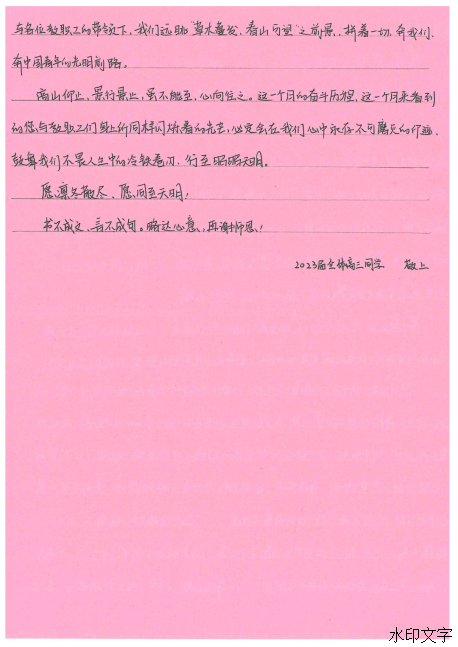 与各位教职工的带领下，我们远眺“草木蔓发，春山可望”之前景，拼着一切，奔我们、
奔中国青年的光明前路。
高山仰止，景行景止，虽不能至，心向往之。这一个月的奋斗历程，这一个月来看到
的您与教职工们身上所同样闪烁着的光芒，必定会在我们心中永存不可磨灭的印迹，
鼓舞我们不畏人生中的冷铁卷刃，行至昭昭天明。
愿凛冬散尽，愿同至天明！
书不成文，言不成句。略达心意，再谢师恩！
2023届全体高三同学 敬上
水印文字